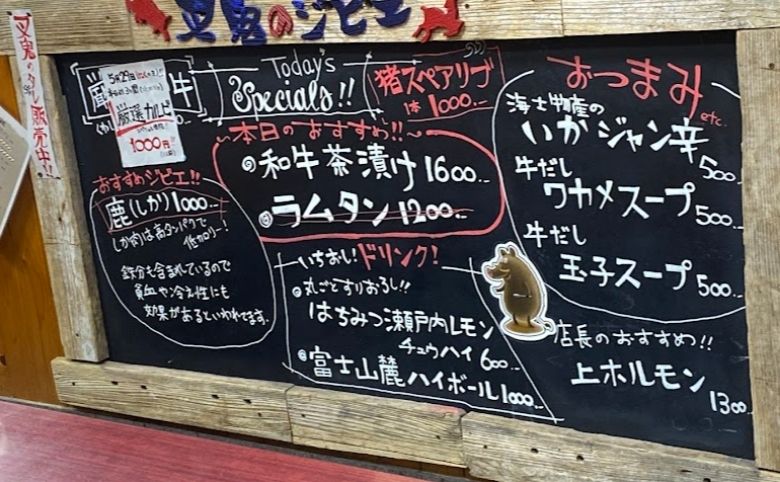 のジビエ
タレ販売中!!
牛
5月29日
厳選カルビ
1000円
Today's
Specials!!
猪スペアリブ
1本 1000...
〜本日のおすすめ!!〜
和牛茶漬け 1600...
ラムタン 1200...
おすすめジビエ!!
鹿(しか) 1000...
しか肉は高タンパクで
低カロリー!
鉄分も含まれているので
貧血や冷え性にも
効果があるといわれてます。
いちおし!ドリンク!
丸ごとすりおろし!!
はちみつ瀬戸内レモン
チュウハイ 600...
富士山麓ハイボール 1000...
おつまみ
etc.
海士物産の
いかジャン辛
500...
牛だし
ワカメスープ
500...
牛だし
玉子スープ
500...
店長のおすすめ!!
上ホルモン
1300...